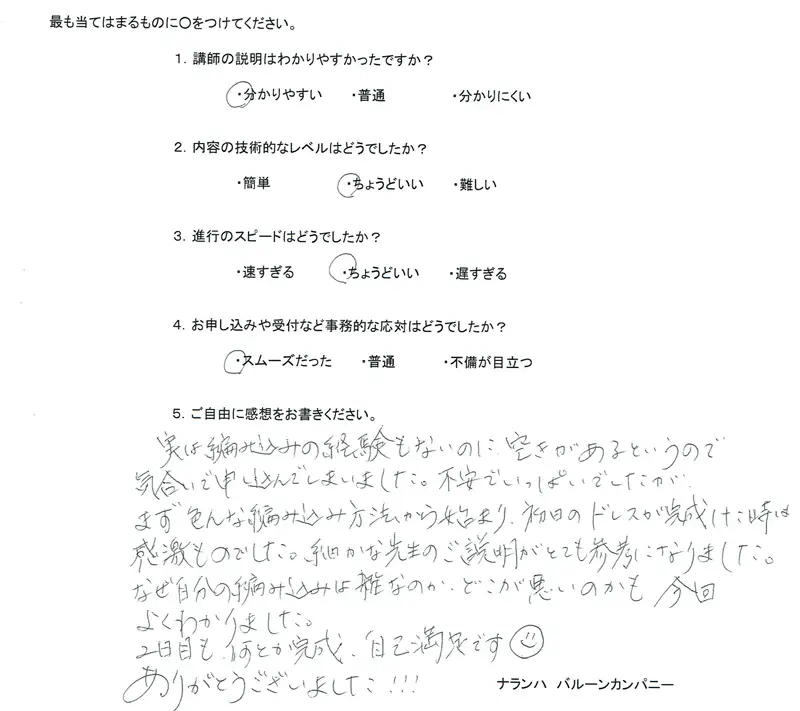 最も当てはまるものに○をつけてください。
1. 講師の説明はわかりやすかったですか?
・分かりやすい ・普通 ・分かりにくい
2. 内容の技術的なレベルはどうでしたか?
・簡単 ・ちょうどいい ・難しい
3. 進行のスピードはどうでしたか?
・速すぎる ・ちょうどいい ・遅すぎる
4. お申し込みや受付など事務的な応対はどうでしたか?
・スムーズだった ・普通 ・不備が目立つ
5. ご自由に感想をお書きください。
実は編み込みの経験もないのに、空きがあるというので
気合いで申し込んでしまいました。不安でいっぱいでしたが、
まず色んな編み込み方法から始まり、初日のドレスが完成した時は
感激ものでした。細かな先生のご説明がとても参考になりました。
なぜ自分の編み込みは雑なのか、どこが悪いのかも 今回
よくわかりました。
2日目も、何とか完成、自己満足です
ありがとうございました!!!
ナランハ バルーンカンパニー